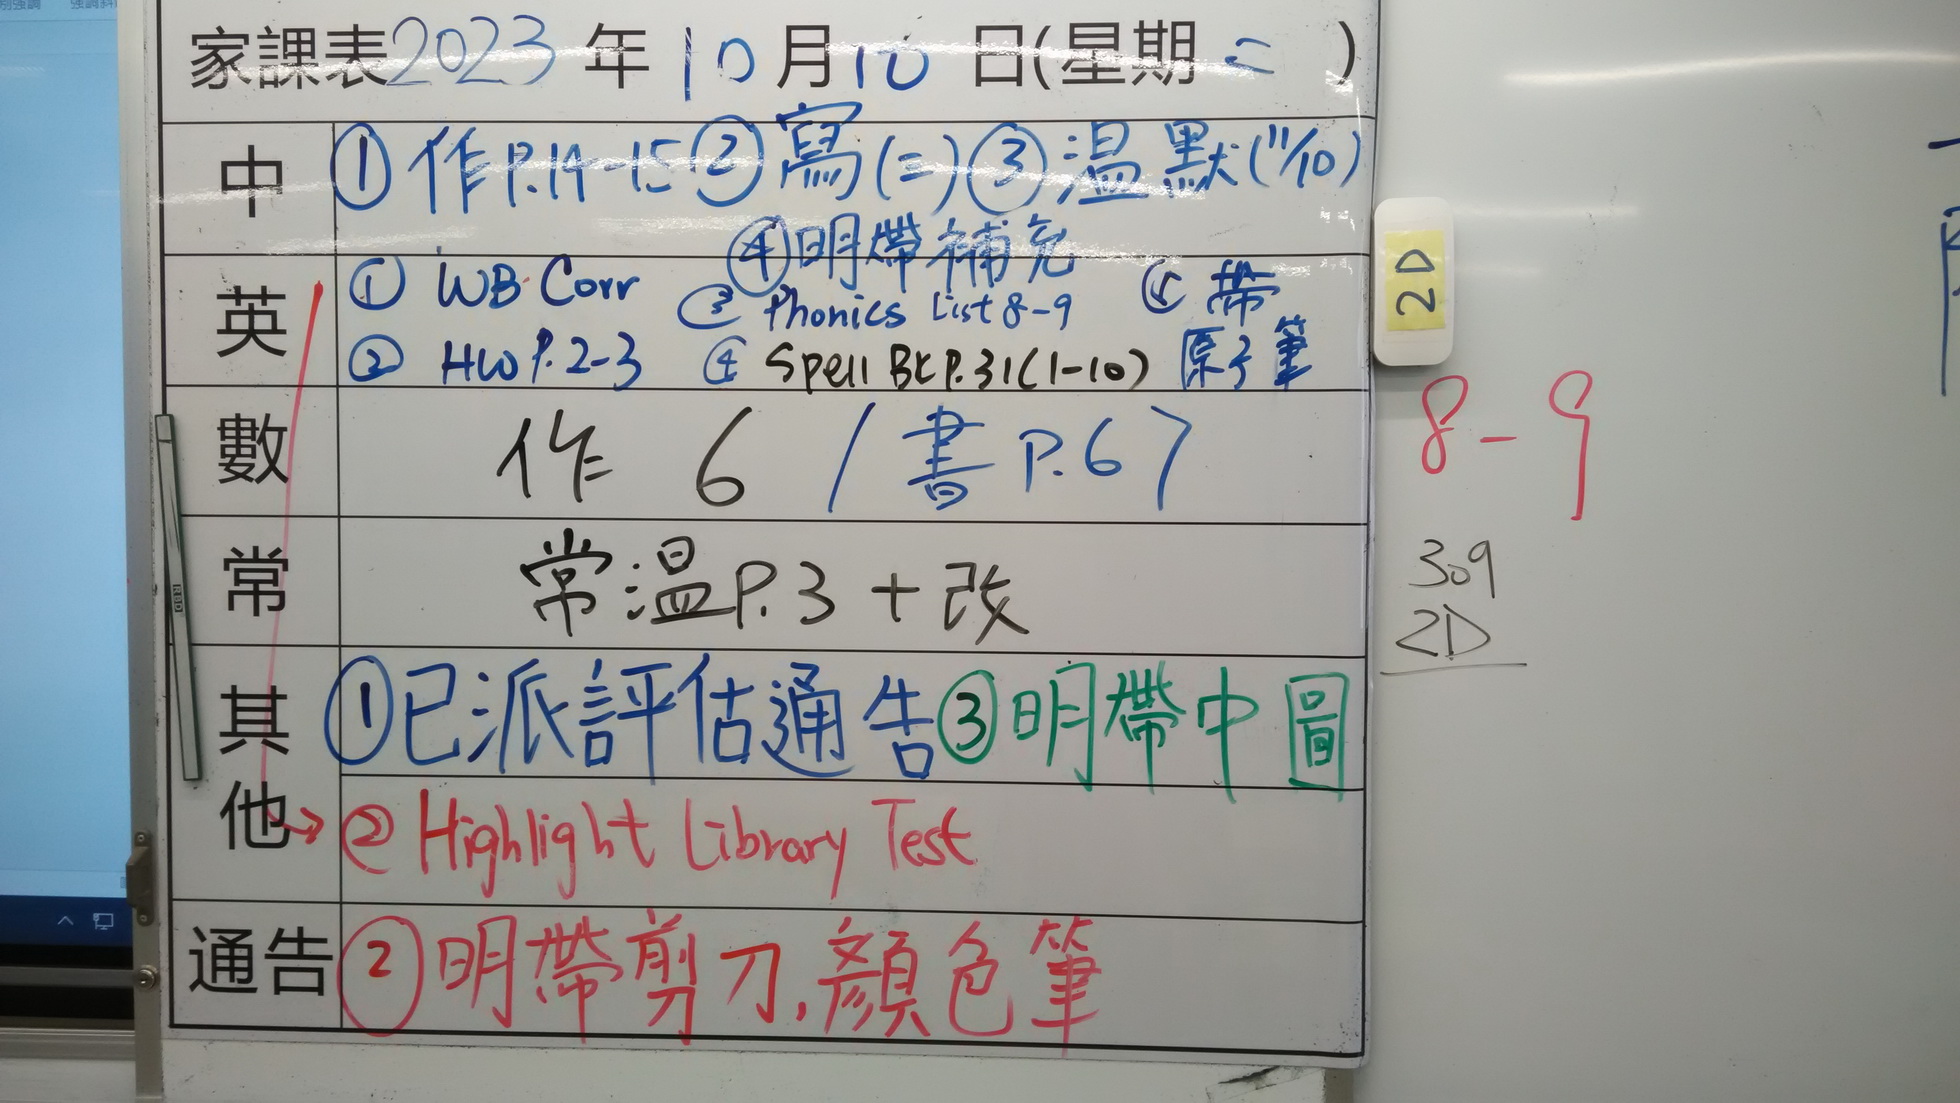 家課表2023年10月10日(星期二)
中 ①作P.14-15②寫(二)③温默(11/10)
④明帶補充
英 ① WB Corr ③ Phonics List 8-9 ⑤ 帶
② HW P.2-3 ④ Spell BK P.31(1-10) 原子筆
數 作 6 / 書 P.67
常 常温P.3 + 改
其他 ①已派評估通告③明帶中圖
→② Highlight Library Test
通告 ②明帶剪刀,顏色筆
2D
8-9
309
2D